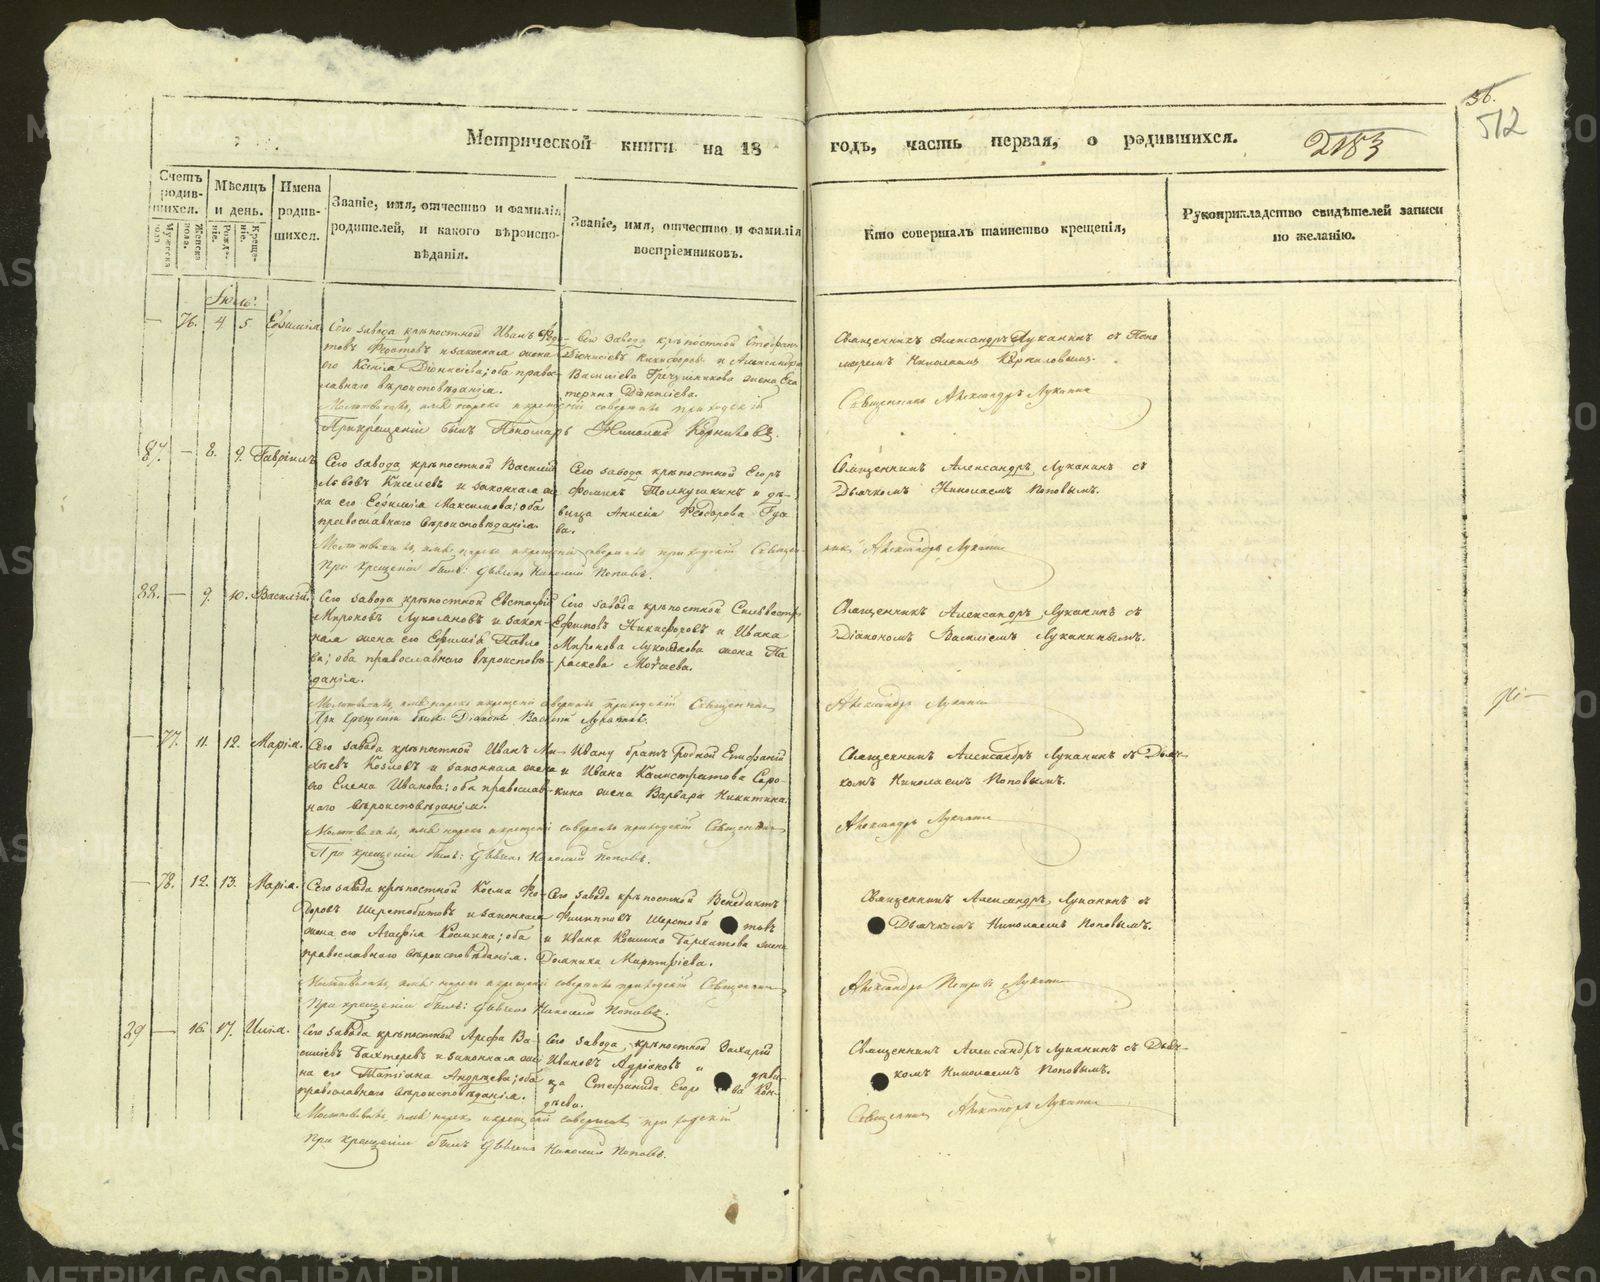 36.
512
Метрической книги на 18 годъ, часть первая, о родившихся. 2183
Счетъ родив-
шихся.
Мужеска пола.
Женска пола.
Мѣсяцъ и день.
Рожде-
ніе.
Креще-
ніе.
Имена родив-
шихся.
Званіе, имя, отчество и фамилія
родителей, и какого вѣроиспо-
вѣданія.
Званіе, имя, отчество и фамилія
воспріемниковъ.
Кто совершалъ таинство крещенія,
Рукоприкладство свидѣтелей записи
по желанію.
Іюль:
— 76. 4 5 Евфимія
Сего завода крѣпостной Иванъ
и законная жена
его Ксенія Діонисіева; оба право-
славнаго вѣроисповѣданія.
Сего завода крѣпостной Стефанъ
Діонисіевъ Никифоровъ и Александра
Василіева жена Ека-
терина Даниліева.
Священникъ Александръ Луканинъ съ Поно-
маремъ Николаемъ Корниловымъ.
Священникъ Александръ Луканинъ
Молитвовалъ, имя нарекъ и крещеніе совершилъ приходскій
При крещеніи былъ Пономарь Николай Корниловъ.
87. — 8. 9. Гавріилъ
Сего завода крѣпостной Василій
Львовъ Киселевъ и законная же-
на его Евфимія Максимова; оба
православнаго вѣроисповѣданія.
Сего завода крѣпостной Егоръ
Фоминъ Толкушкинъ и дѣ-
вица Анисія Феодорова
Священникъ Александръ Луканинъ съ
Дьячкомъ Николаемъ Поповымъ.
Молитвовалъ, имя нарекъ и крещеніе совершилъ приходскій Священ-
никъ Александръ Луканинъ
При крещеніи былъ: Дьячекъ Николай Поповъ.
88. — 9. 10. Василій.
Сего завода крѣпостной Евстафій
Мироновъ Лукояновъ и закон-
ная жена его Евфимія Павло-
ва; оба православнаго вѣроисповѣ-
данія.
Сего завода крѣпостной Сильвестръ
Ефимовъ Никифоровъ и Ивана
Миронова Лукоянова жена Па-
раскева Мокіева.
Священникъ Александръ Луканинъ съ
Діакономъ Василіемъ Луканинымъ.
Молитвовалъ, имя нарекъ и крещеніе совершилъ приходскій Священникъ
Александръ Луканинъ
При крещеніи былъ: Діаконъ Василій Луканинъ.
— 77. 11. 12. Марія.
Сего завода крѣпостной Иванъ Ми-
хѣевъ Козловъ и законная жена
его Елена Иванова; оба православ-
наго вѣроисповѣданія.
Ивану братъ родной Епифаній
и Ивана Калистратова Соро-
кина жена Варвара Никитина.
Священникъ Александръ Луканинъ съ Дьяч-
комъ Николаемъ Поповымъ.
Александръ Луканинъ
Молитвовалъ, имя нарекъ и крещеніе совершилъ приходскій Священникъ
При крещеніи былъ: Дьячекъ Николай Поповъ.
— 78. 12. 13. Марія.
Сего завода крѣпостной Косма Фе-
доровъ Шерстобитовъ и законная
жена его Агафія Космина; оба
православнаго вѣроисповѣданія.
Сего завода крѣпостной Венедиктъ
Филипповъ Шерстобитовъ
и Ивана Космина Бархатова жена
Домника
Священникъ Александръ Луканинъ съ
Дьячкомъ Николаемъ Поповымъ.
Молитвовалъ, имя нарекъ и крещеніе совершилъ приходскій Священникъ
Александръ Петровъ Луканинъ
При крещеніи былъ: Дьячекъ Николай Поповъ.
89 — 16. 17. Илія.
Сего завода крѣпостной Арефа Ва-
силіевъ Бахтеревъ и законная же-
на его Татіана Андреева; оба
православнаго вѣроисповѣданія.
Сего завода, крѣпостной Захарій
Ивановъ Адріановъ и дѣви-
ца Стефанида Егорова Кон-
дѣева.
Священникъ Александръ Луканинъ съ Дьяч-
комъ Николаемъ Поповымъ.
Священникъ Александръ Луканинъ
Молитвовалъ, имя нарекъ и крещеніе совершилъ приходскій
При крещеніи былъ Дьячекъ Николай Поповъ.
METRIKI.GASO-URAL.RU